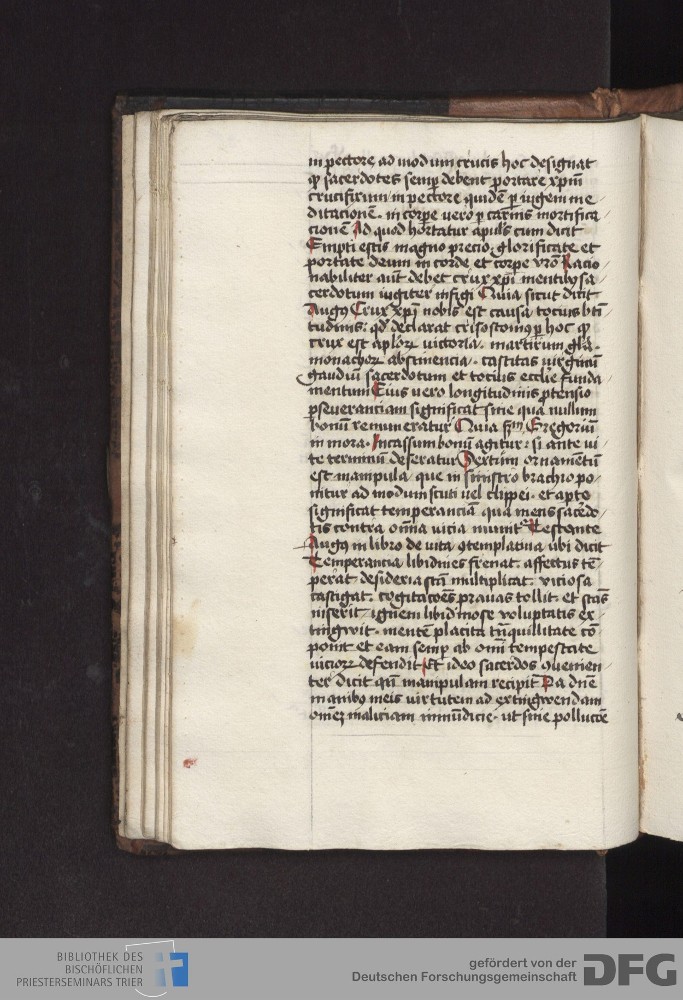 in pectore ad modum crucis hoc designat
qꝫ sacerdotes semꝑ debent portare xp̄m
crucifixum in pectore quidē ꝑ iugem me
ditacionē. in corꝑe vero ꝑ carnis mortifica
cionē Ad quod hortatur apl̄us cum dicit
Empti estis magno precio glorificate et
portate deum in corde et corꝑe vr̄o Racio
nabiliter aūt debet crux xp̄i mentibꝰ sa
cerdotum iugiter infigi Quia sicut dicit
Augꝰ Crux xp̄i nobis est causa tocius bt̄i
tudinis: qd̓ declarat crisostomꝰ ꝑ hoc qꝫ
crux est ap̄loꝝ victoria. martirum gl̄a.
monachoꝝ abstinencia. castitas virginū
gaudiū sacerdotum et tocius eccl̄ie funda
mentum Eius vero longitudinis ꝓtensio
ꝑseueranciam significat sine qua nullum
bonū remuneratur Quia sm̄ Gregoriū
in mora. Incassum bonū agitur: si ante vi
te terminū deseratur Sextum ornamentū
est manipula. que in sinistro brachio po
nitur ad modum scuti vel clippei. et apte
significat temperanciā qua mens sacerdo
tis contra omīa vicia munit̉ Testante
Augꝰ in libro de vita ꝯtemplatiua ubi dicit
Temperancia libidines frenat. affectus tē
perat desideria sctā multiplicat. viciosa
castigat. cogitacōes prauas tollit. et sctās
inserit. ignem libidinose voluptatis ex
tingwit. mentē placita tn̄quillitate cō
ponit et eam semꝑ ab omī tempestate
vicioꝝ defendit Et ideo sacerdos ꝯuenien
ter dicit qn̄ manipulam recipit Da dn̄e
manibꝰ meis virtutem ad extingwendam
omēꝫ maliciam immūdicie. ut sine pollucōe
BIBLIOTHEK DES
BISCHÖFLICHEN
PRIESTERSEMINARS TRIER
gefördert von der
Deutschen Forschungsgemeinschaft
DFG